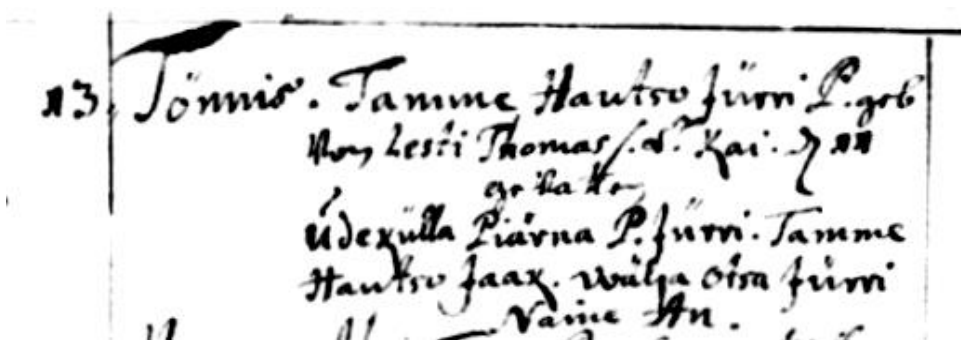 13. Tönnis. Tamme Hautso Jürri P. geb
Von Lesti Thomas s. d. Kai. 11
gevatter
Üdexülla Piärna P. Jürri. Tamme
Hautso Jaax. Wälja otsa Jürri
Naine An.